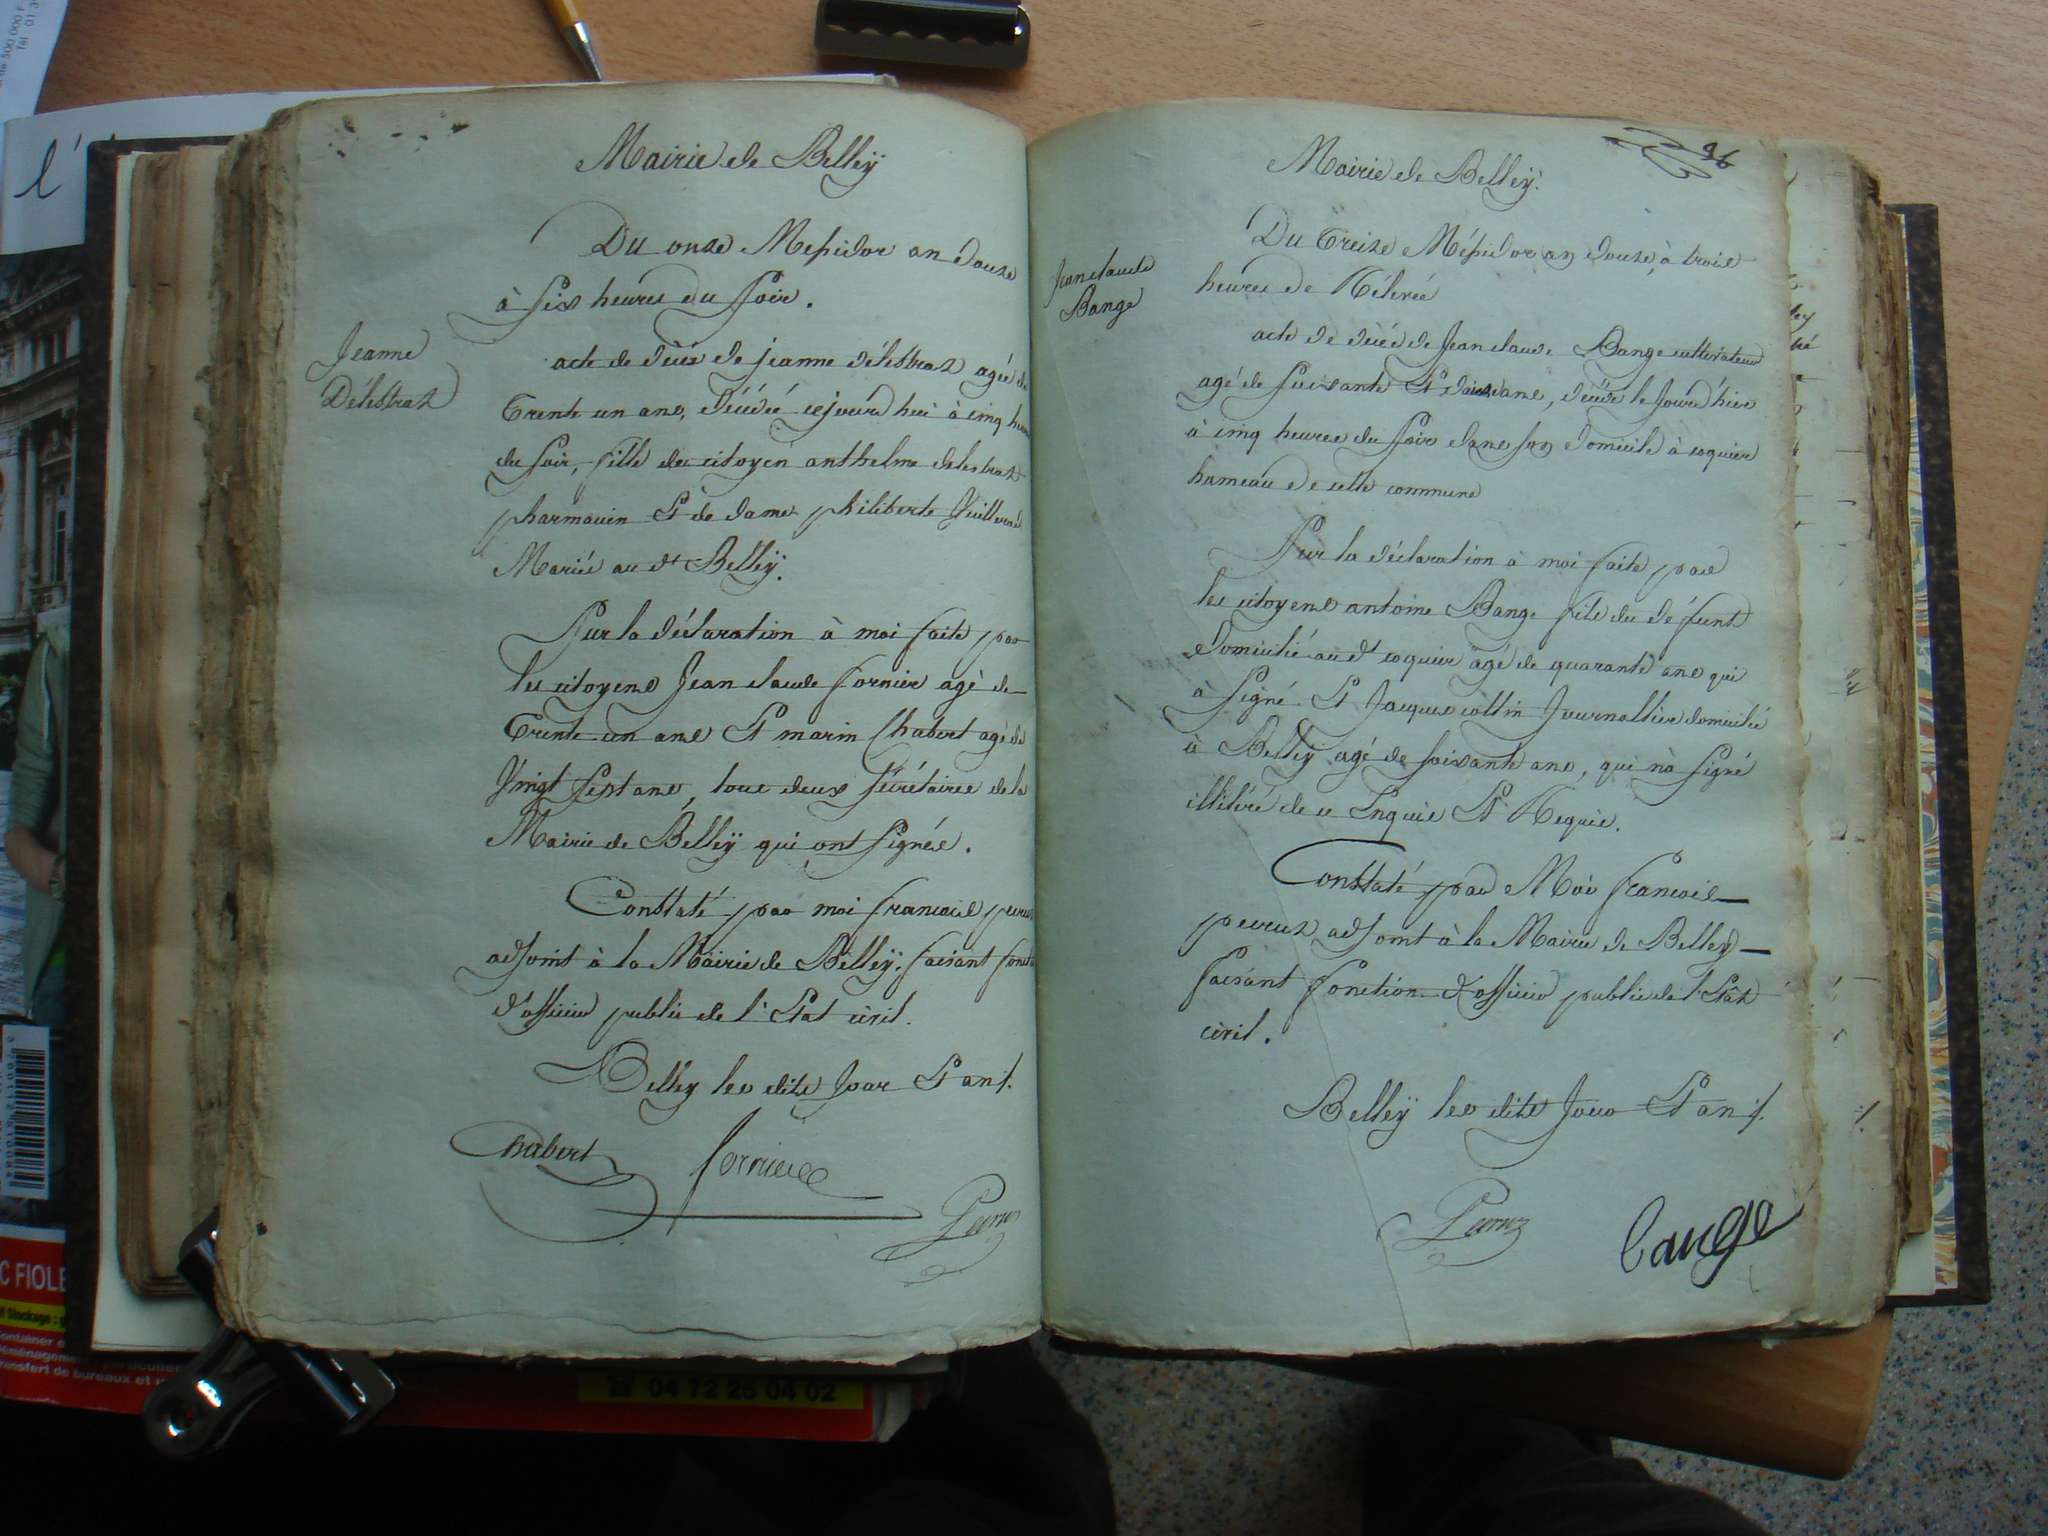 Mairie de Belleÿ
Du onze Messidor an douze
à six heures du soir.
Jeanne
Délestraz
acte de décés de jeanne délestraz agée de
Trente un ans, décédée cejourd'hui à cinq heures
du soir, fille du citoyen anthelme delestraz
pharmacien Et de dame philiberte
Mariés au dt Belleÿ.
Sur la déclaration à moi faite par
les citoyens Jean claude fornier agé de
Trente un ans Et marin Chabert agé de
Vingt sept ans, tous deux sécrétaires de la
Mairie de Belleÿ qui ont signés.
Constaté par moi francois peruz
adjoint à la Mairie de Belleÿ, faisant fonction
d'officier public de l'Etat civil.
Belley les dits Jour Et an ./.
Chabert fornier
Peruz
36
Mairie de Belleÿ.
Du Treize Méssidor an douze, à trois
heures de Rélevée
Jean claude
Bange
acte de décé de Jean claude Bange cultivateur
agé de soixante Et douze ans, décédé le Jourd'hier
à cinq heures du soir dans son domicile à coquier
hameau de cette commune
Sur la déclaration à moi faite par
les citoyens antoine Bange fils du défunt
domicilié au dt coquier agé de quarante ans qui
à signé. Et Jacques cottin Journallier domicilié
à Belleÿ agé de soixante ans, qui n'à signé
illitéré de ce Enquis Et Requis.
Constaté par Moi francois
peruz adjoint à la Mairie de Belley
faisant fonction d'officier public de l'Etât
civil.
Belleÿ les dits Jour Et an ./.
Peruz
bange
C FIOLE
04 72 26 04 02